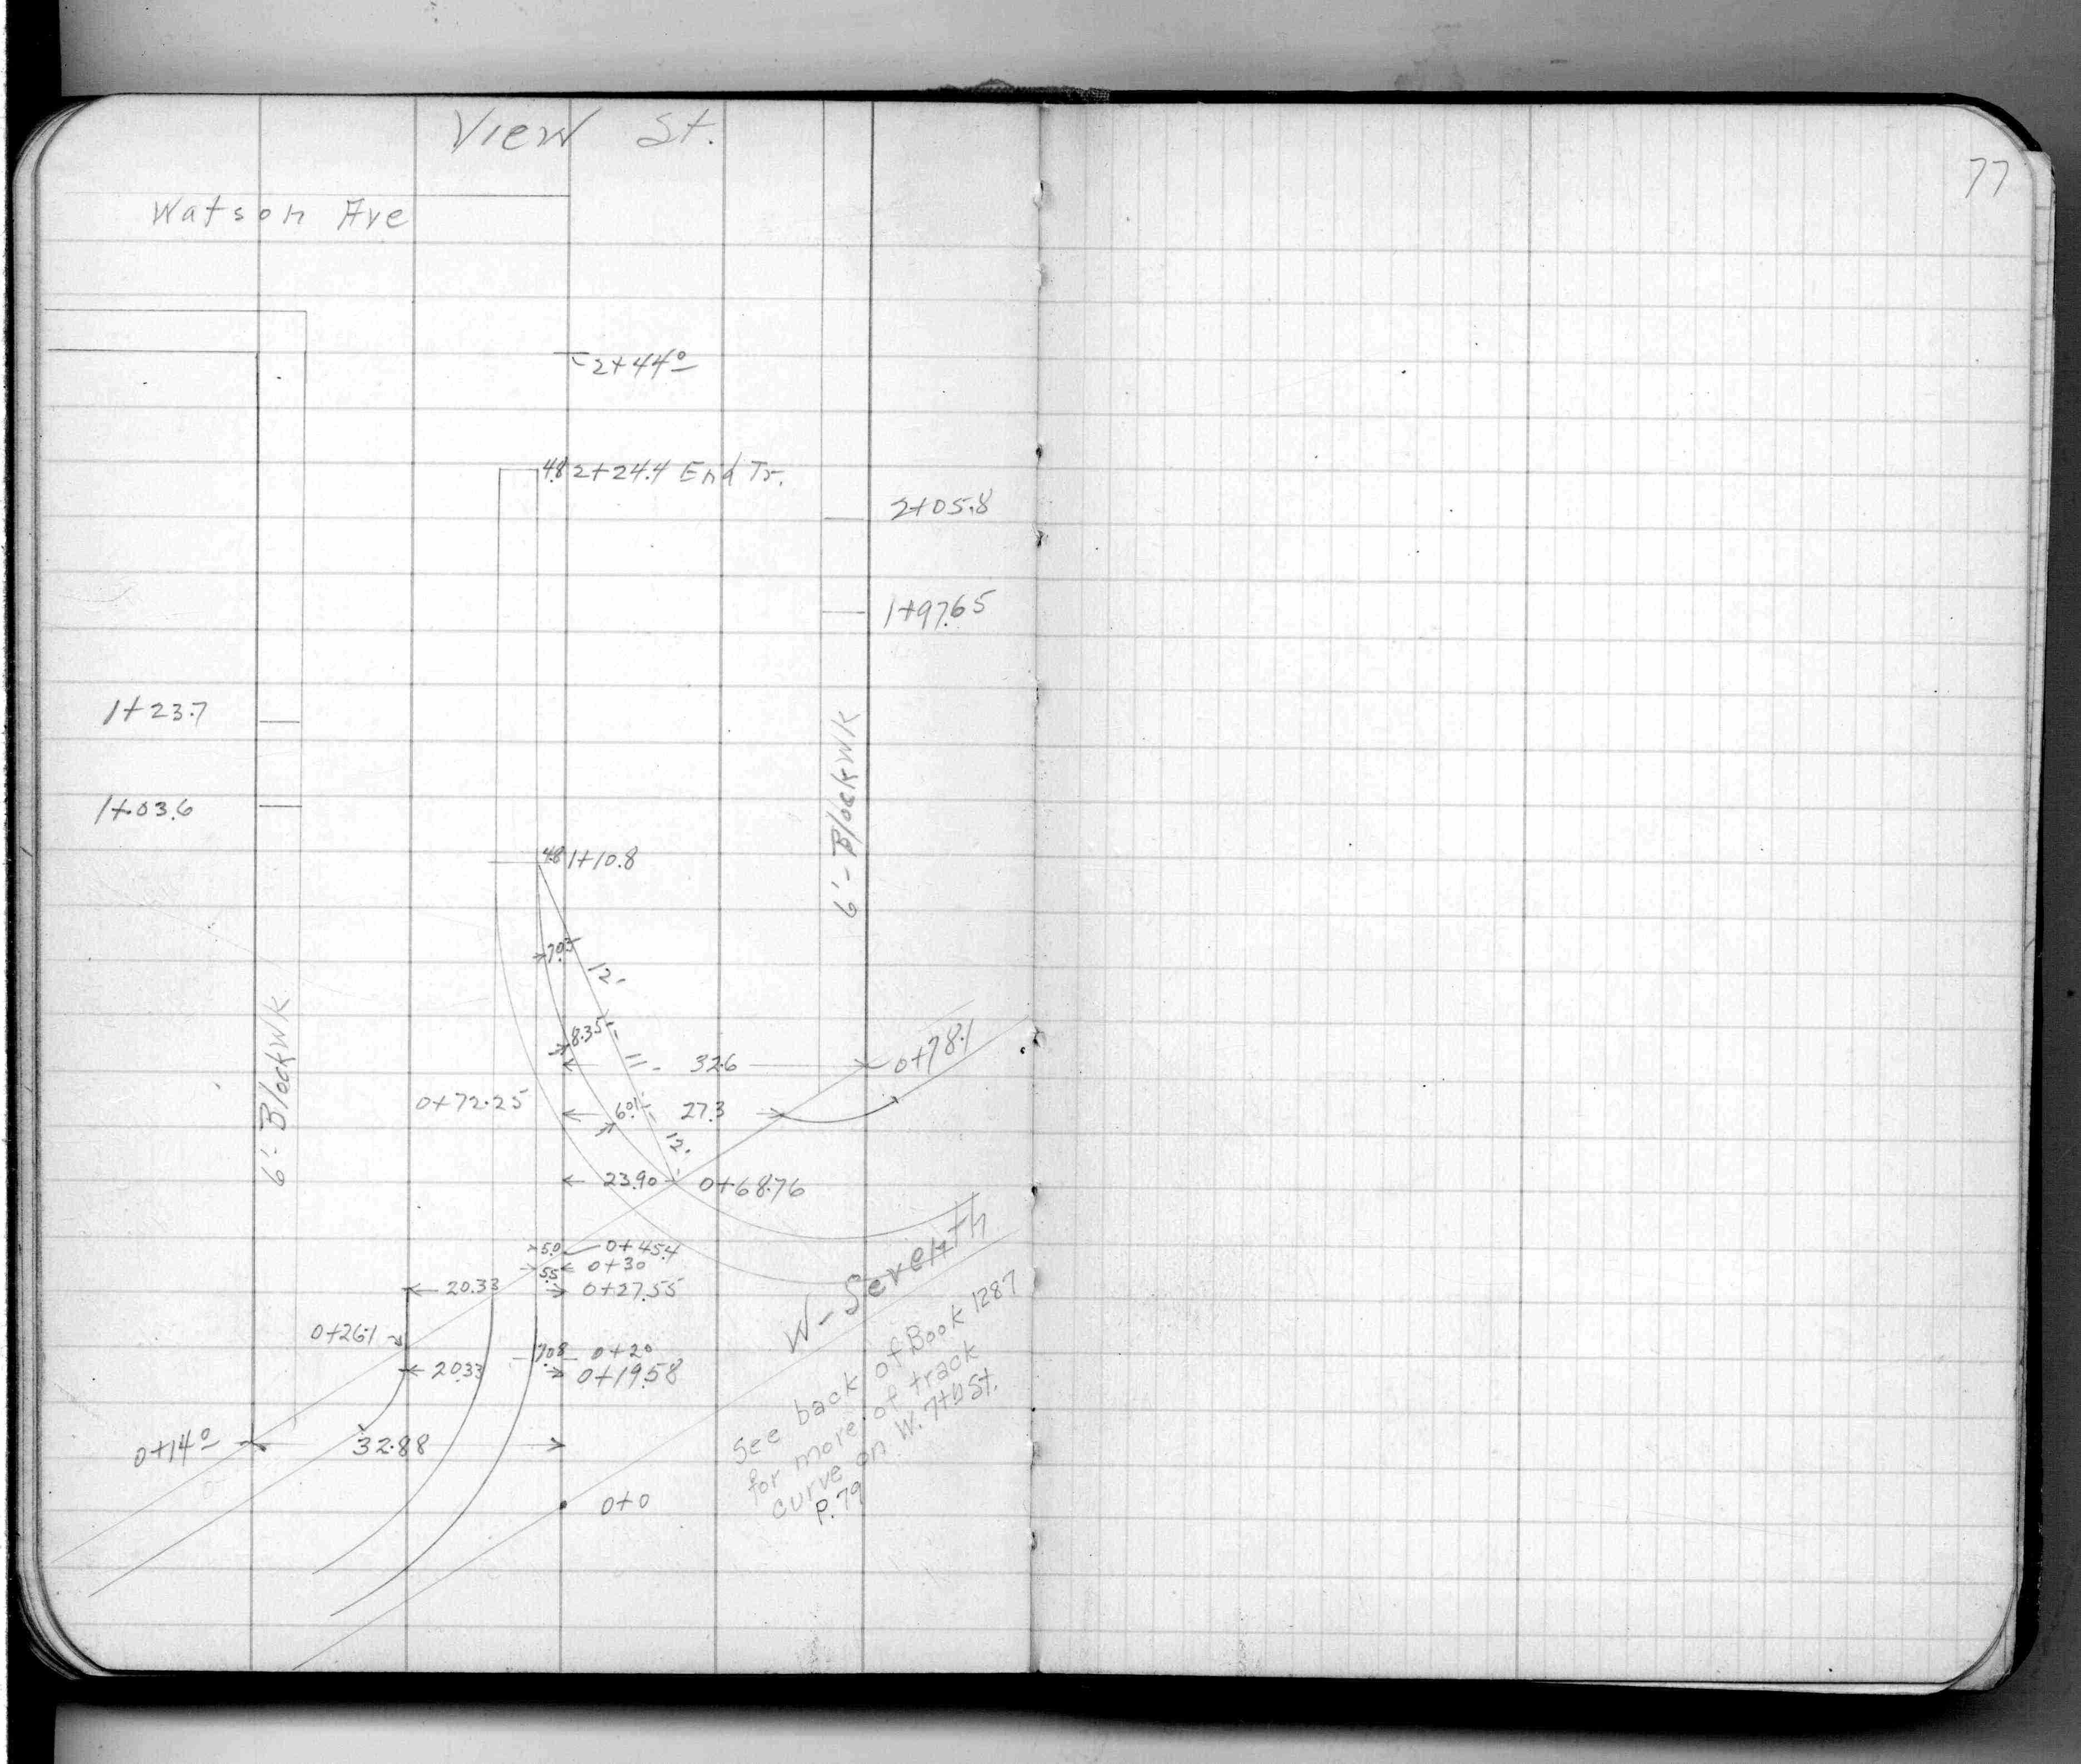 View St.
77
Watson Ave
2+44º
4.8 2+24.4 End Tr.
2+05.8
1+97.65
1+23.7
1+03.6
6'-BlockWK
4.8 1+10.8
7.05
12.
8.35
11.
32.6
0+78.1
6'-BlockWK
0+72.25
6.01
27.3
12.
23.90
0+68.76
5.0
0+45.4
5.5
0+30
20.33
0+27.55
W-Seventh
0+26.1
7.08
0+20
20.33
0+19.58
0+14º
32.88
0+0
See back of Book 1287
for more of track
curve on W. 7th St.
P.79